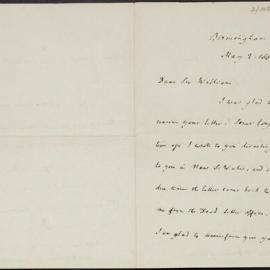 Birmingham
May 2
Dear Sir William
I was glad to
receive your letter; Some long
time ago I wrote to you directing
to you in New S. Wales, and in
due time the letter came back to
me from the Dead Letter office.
I am glad to